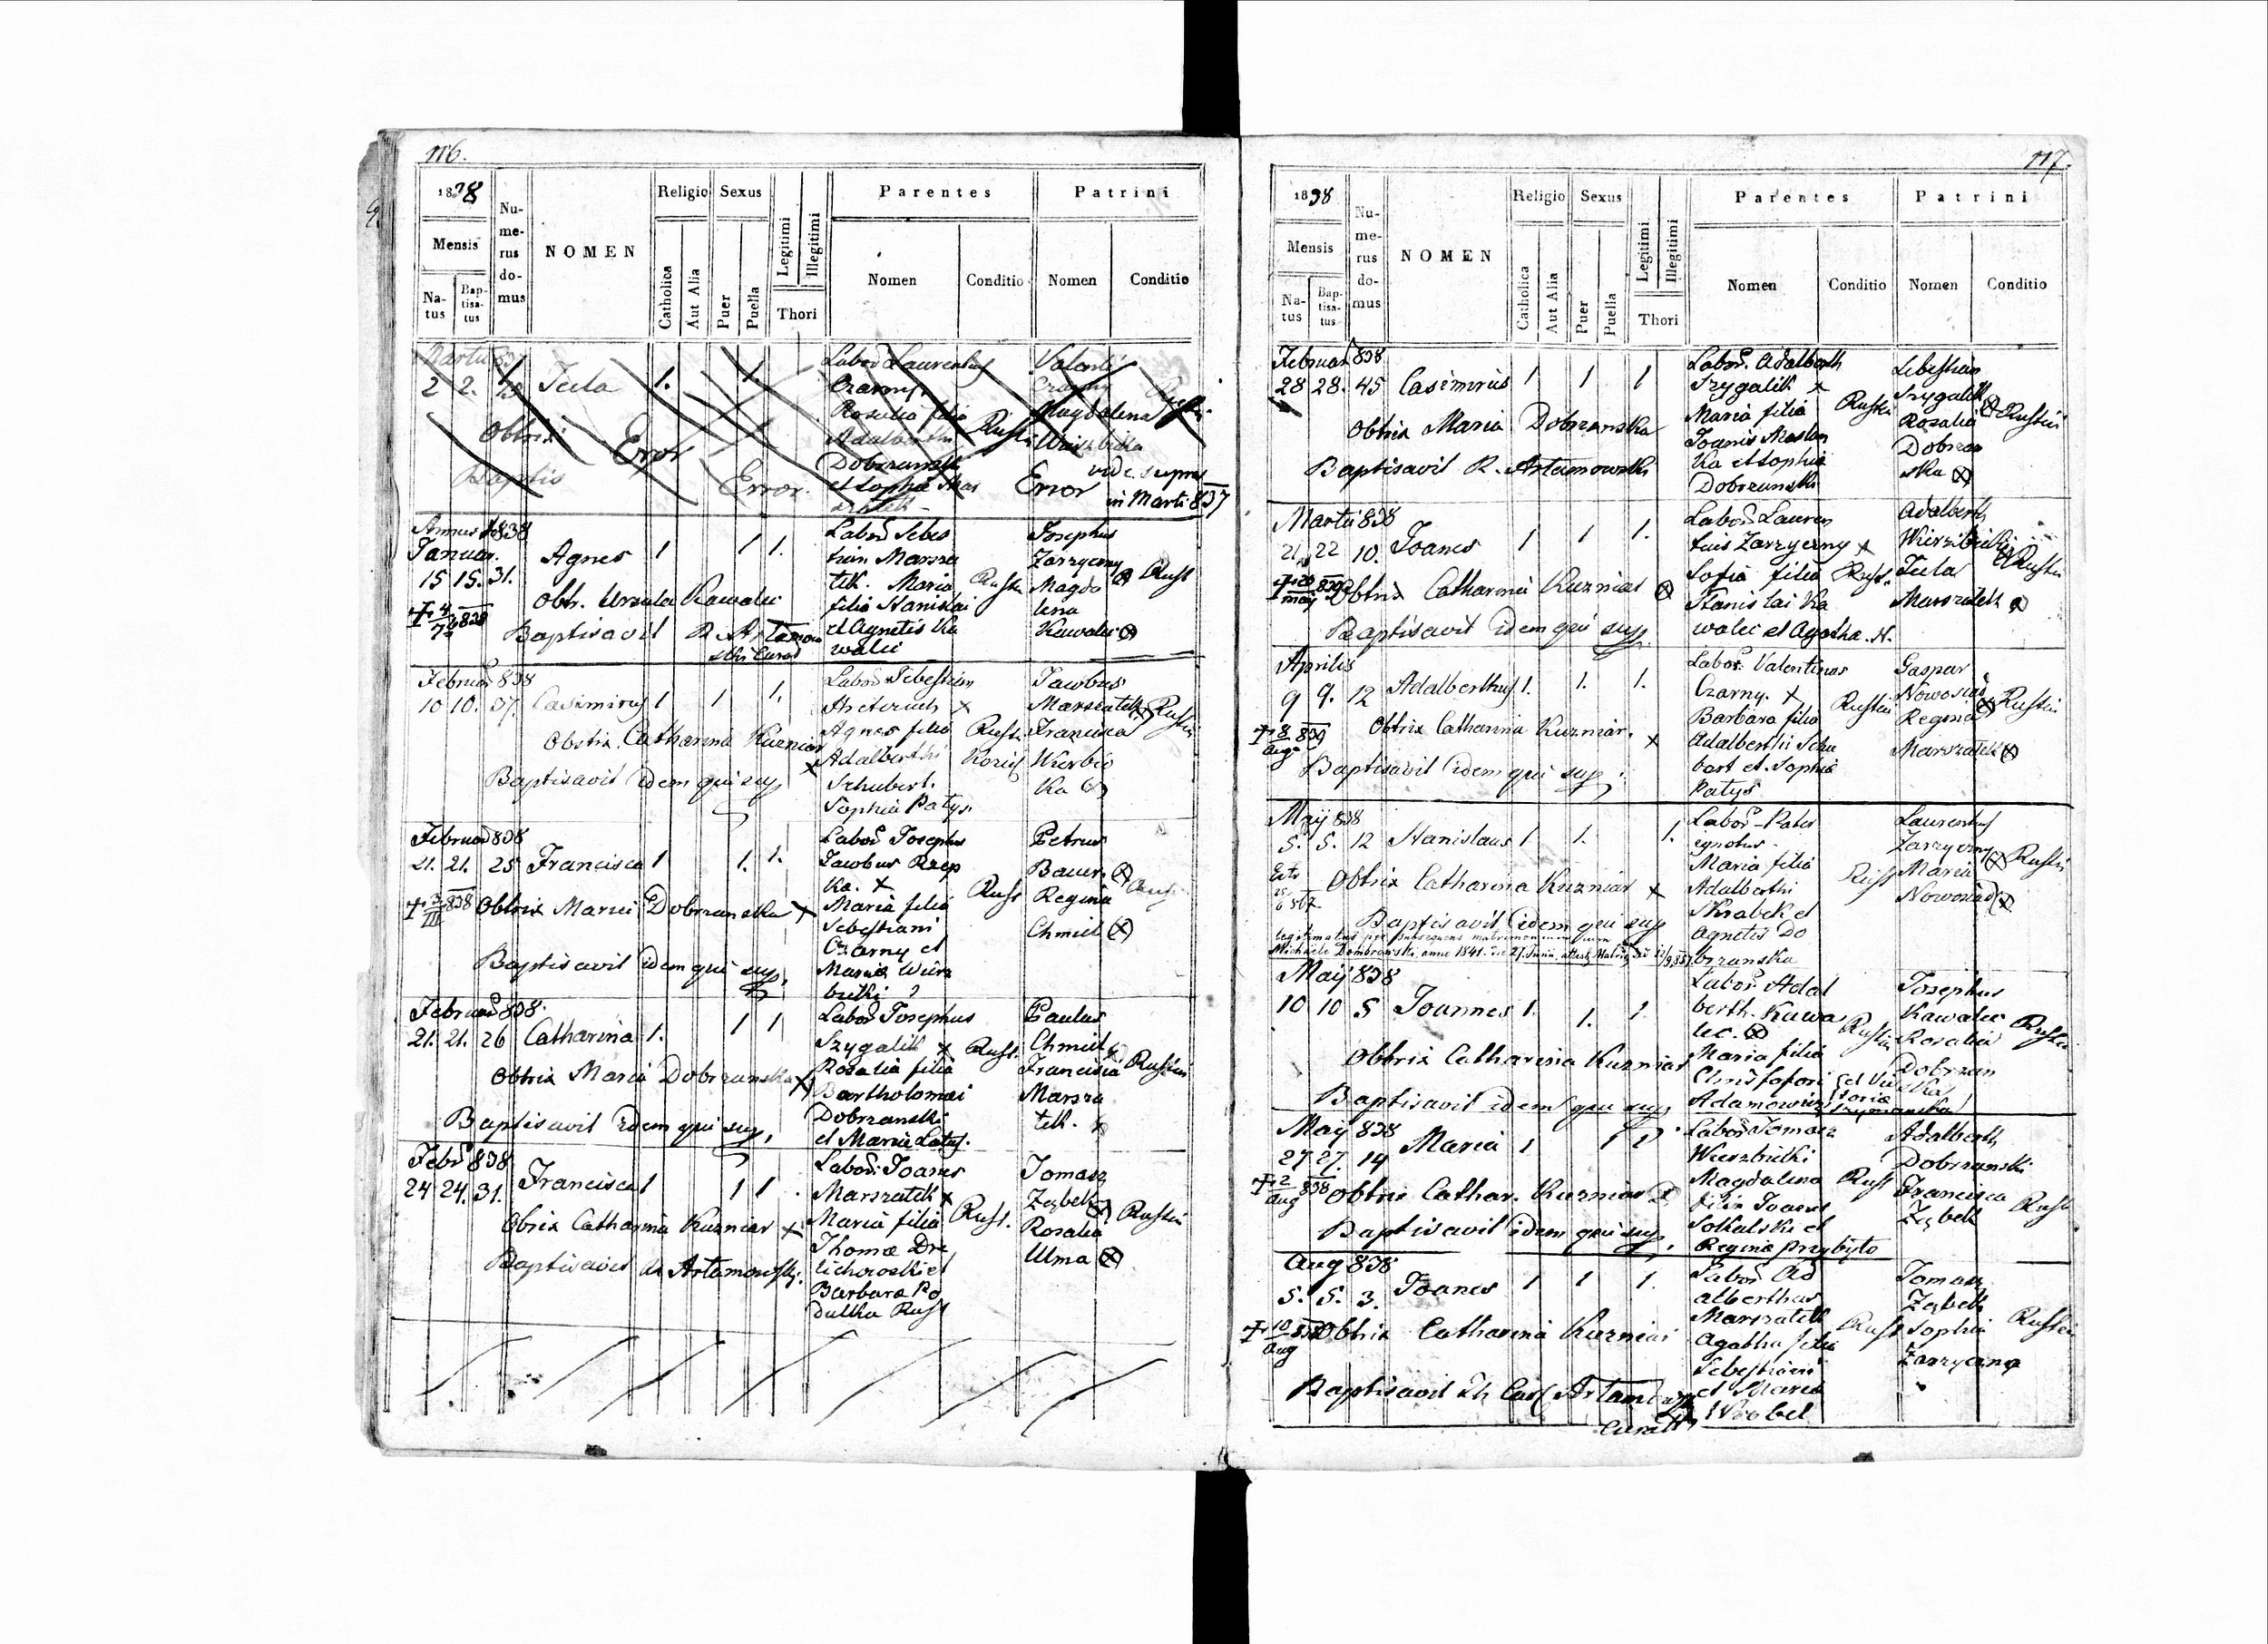 116.
1838
Mensis
Na-
tus
Bap-
tisa-
tus
Nu-
me-
rus
do-
mus
NOMEN
Religio
Catholica
Aut Alia
Sexus
Puer
Puella
Legitimi
Illegitimi
Thori
Parentes
Nomen
Conditio
Patrini
Nomen
Conditio
2 2. 13 Tecla 1. 1.
Labor Laurentius
Czarny
Rosalia filia
Adalberthi
Dobrzanski
et Sophia
Valenti
Czarny
Magdalena
Obtrix
Error
Baptis
Error.
Error
vide supra
in Marti 837
Annus 1838
Januar.
15 15. 31. Agnes 1 1 1.
Obtr. Ursula Kawalec
Baptisavit R. Artamow
ski Curat
Labor Sebes
tian Marsza
tek. Maria
filia Stanislai
et Agnetis Ka
walec
Josephus
Zarzyczny
Magda
lena
Kawalec
Rust
Februar 838
10 10. 37. Casimirus 1 1 1.
Obstix Catharina Kuzniar
Baptisavit idem qui sup
Labor Sebestian
Agnes filia
Adalberthi
Schubert.
Sophia Patys.
Rusti
Jacobus
Marszatek
Francisca
Wierbic
ka
Rustici
Februar 838
21. 21. 25 Francisca 1 1. 1.
838 Obtrix Maria Dobrzanska
Baptisavit idem qui sup,
Labor Josephus
Jacobus Rzep
ka.
Maria filia
Sebestiani
Czarny et
Maria Wierz
bicki
Rust
Petrus
Bauer
Regina
Chmiel
Februar 838.
21. 21. 26 Catharina 1. 1 1
Obtrix Maria Dobrzanska
Baptisavit idem qui sup,
Labor Josephus
Szygalik
Rosalia filia
Bartholomei
Dobrzanski
et Maria
Rust.
Paulus
Chmiel
Francisca
Marsza
tek.
Rustici
Febr 838
24 24. 31. Francisca 1 1 1
Obrix Catharina Kuzniar
Baptisavit Artamowski.
Labor. Joanes
Marszatek
Maria filia
Thoma Dre
lichowski et
Barbara Po
dulka Rust
Rust.
Tomasz
Ząbek
Rosalia
Ulma
Rustici
117.
1838
Mensis
Na-
tus
Bap-
tisa-
tus
Nu-
me-
rus
do-
mus
NOMEN
Religio
Catholica
Aut Alia
Sexus
Puer
Puella
Legitimi
Illegitimi
Thori
Parentes
Nomen
Conditio
Patrini
Nomen
Conditio
Februar 838
28 28. 45 Casimirus 1 1 1
Obtrix Maria Dobrzanska
Baptisavit R. Artamowski
Labor. Adalberth
Szygalik
Maria filia
Joanis
ka et Sophia
Dobrzanski
Rusti
Sebestian
Szygalik
Rosalia
Dobrzan
ska
Rustici
Martii 838
21 22 10. Joanes 1 1 1.
Obtrix Catharina Kuzniar
Baptisavit idem qui sup.
Labor Lauren
tuis Zarzyczny
Sofia filia
Stanislai Ka
walec et Agatha. N.
Rust.
Adalberth
Wierzbicki
Tecla
Marszatek
Rustici
Aprilis
9 9. 12 Adalberthus 1. 1. 1.
Obtrix Catharina Kuzniar.
Baptisavit idem qui sup.
Labor. Valentinus
Czarny.
Barbara filia
Adalberthi Schu
bart et. Sophia
Patys
Rustici
Gaspar
Nowosiad
Regina
Marszatek
Rustici
Maij 838
5. 5. 12 Stanislaus 1. 1. 1.
Obtrix Catharina Kuzniar
Baptisavit idem qui sup
legitimatus per subsequens matrimonium cum
Michaele Dombrowski, anno 1841. die 27. Junii,
Labor - Pater
ignotus
Maria filia
Adalberthi
Skrabek et
Agnetis Do
brzanska
Rust
Laurentius
Zarzyczny
Maria
Nowosiad
Rustici
Maij 838
10 10 5 Joannes 1. 1. 1
Obtrix Catharina Kuzniar
Baptisavit idem qui sup
Labor Adal
berth. Kawa
lec.
Maria filia
Christofori
Adamowicz
Rustici
Josephus
Kawalec
Rosalia
Dobrzan
ska
Maij 838
27 27. 14 Maria 1 1 1
Aug 838 Obtrix Cathar. Kuzniar
Baptisavit idem qui sup,
Labor Tomasz
Wierzbicki
Magdalena
filia Joanes
Sokalski et
Regina Przybyto
Rust
Adalberth
Dobrzanski
Francisca
Ząbek
Rust
Aug 838
5. 5. 3. Joanes 1 1 1.
Aug Obtrix Catharina Kuzniar
Baptisavit
Labor Ad
alberthus
Marszatek
Agatha filia
Sebestiani
et Maria
Wrobel
Rust
Tomasz
Ząbek
Sophia
Zarzyczna
Rustici